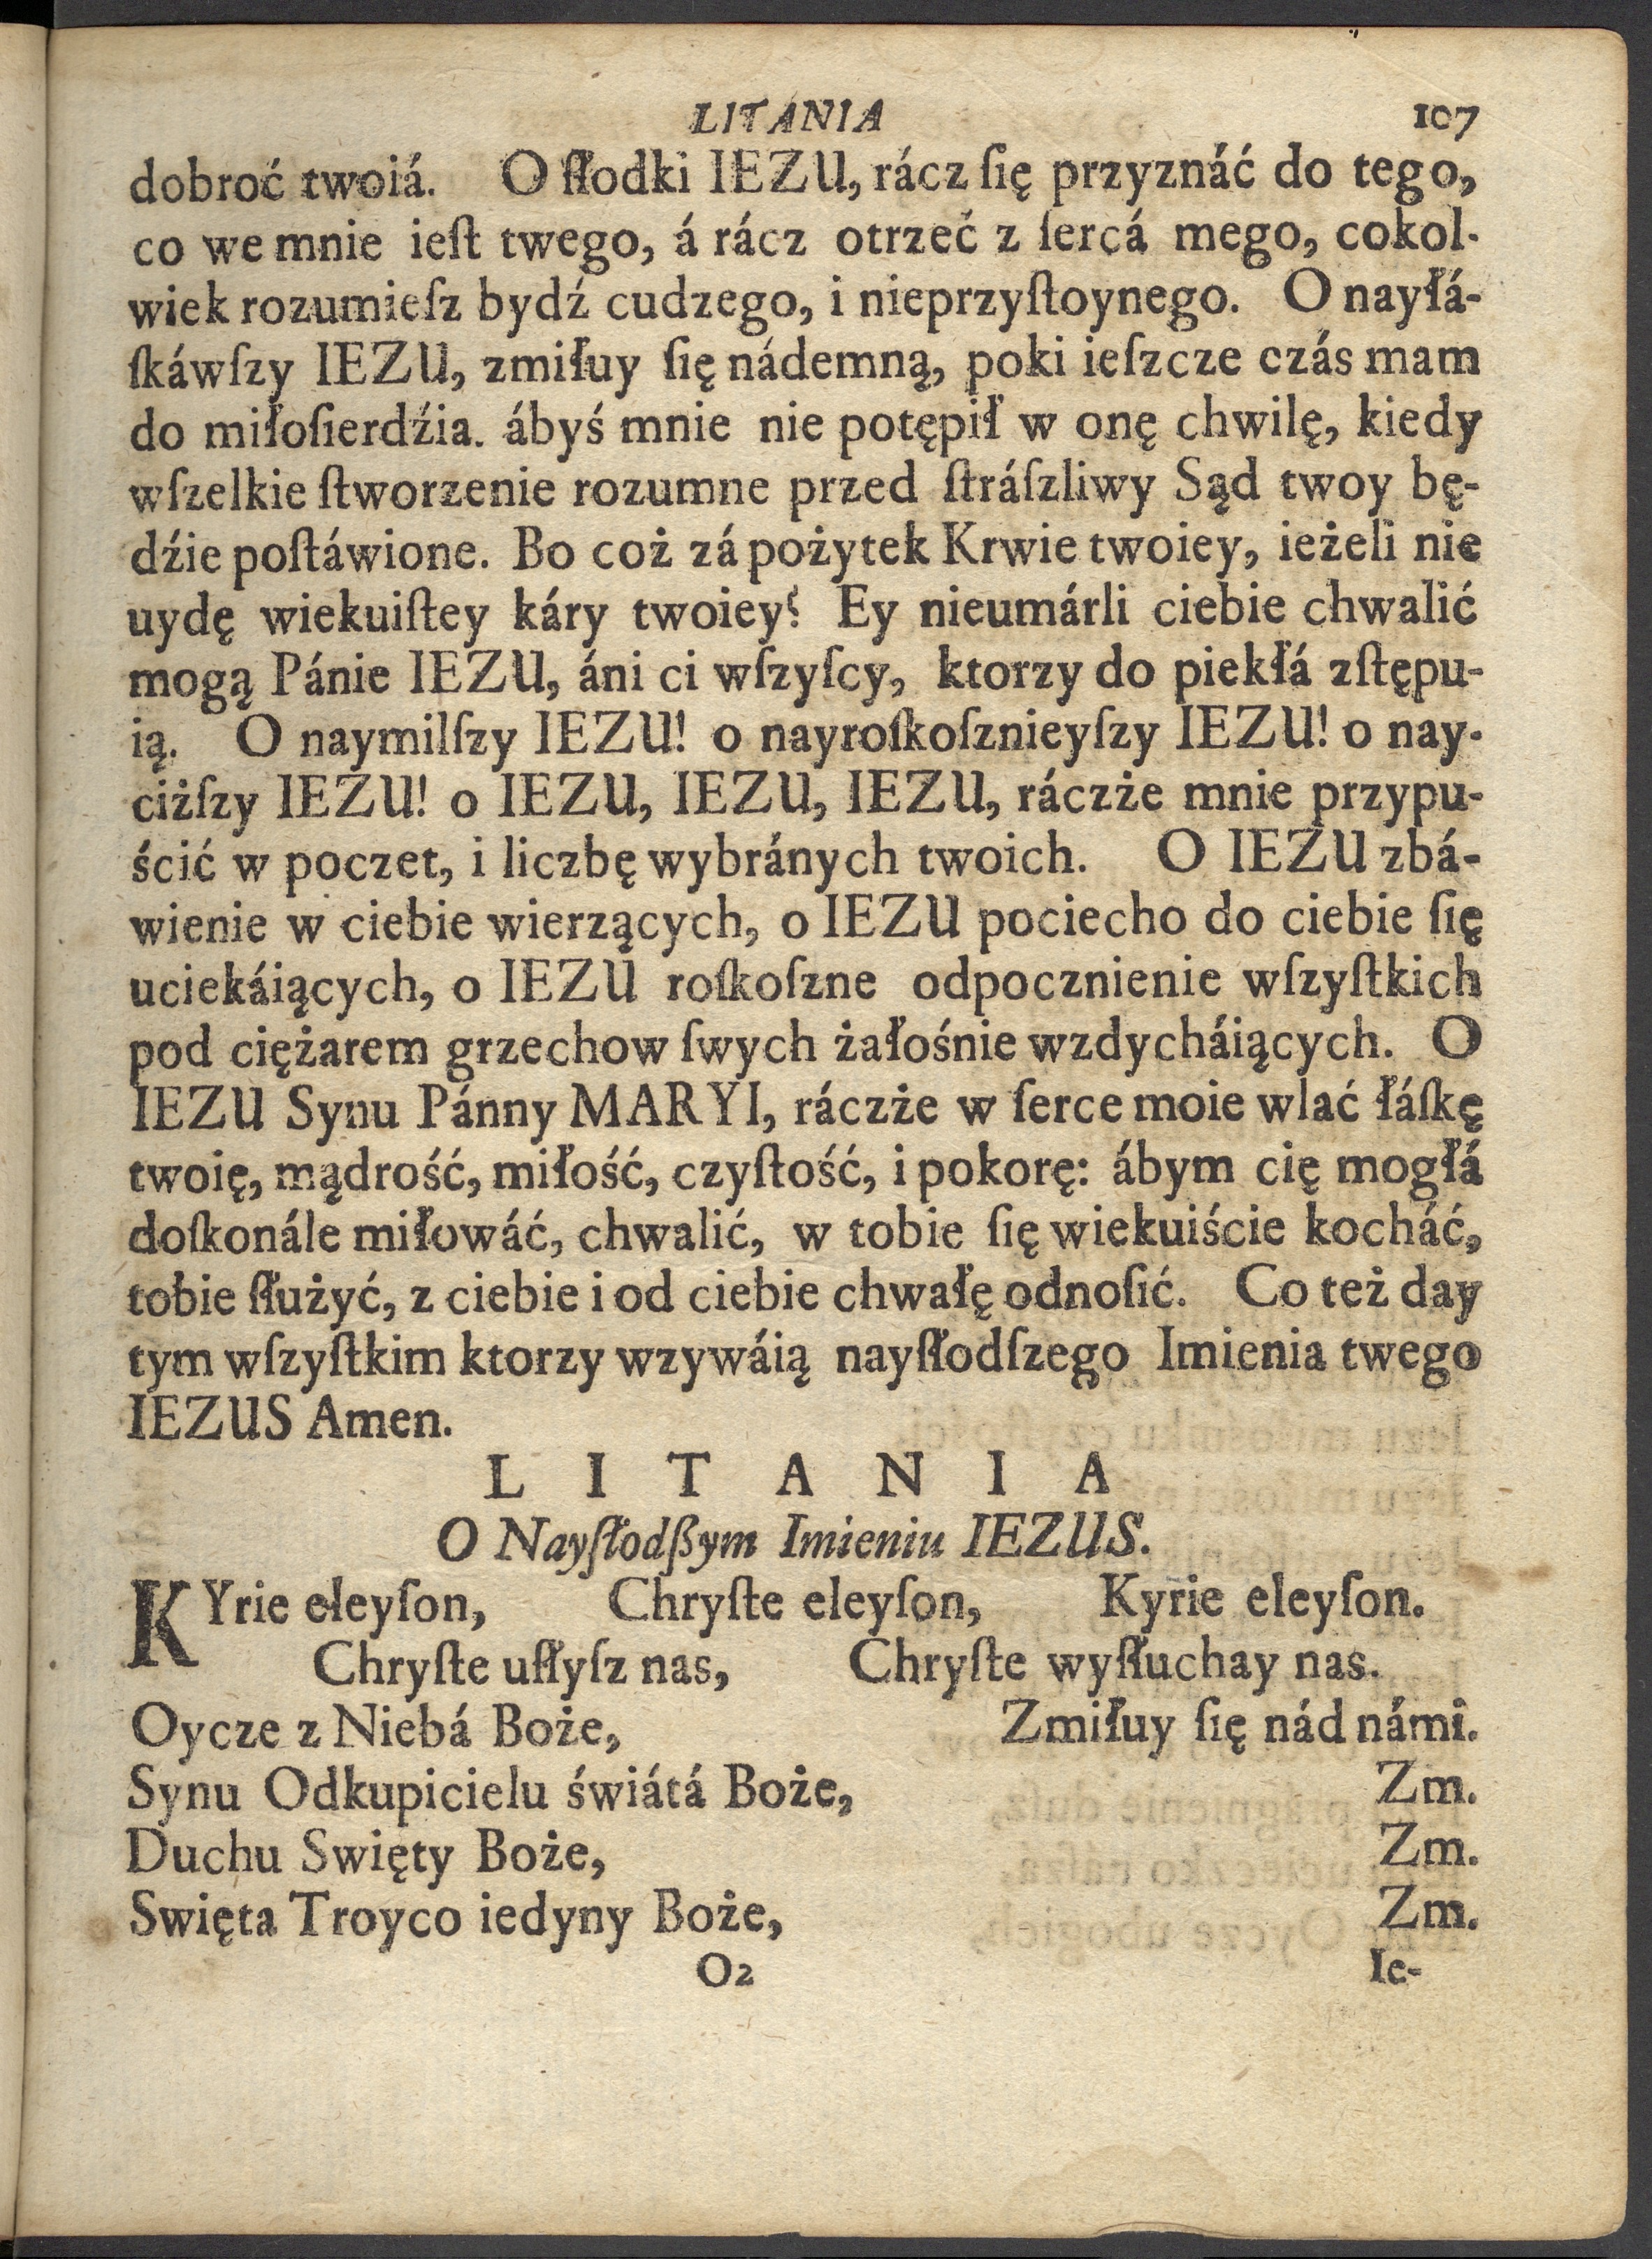 LITANIA 107
dobroć twoiá. O ſłodki IEZU, rácz ſię przyznáć do tego,
co we mnie ieſt twego, á rácz otrzeć z ſercá mego, cokol-
wiek rozumieſz bydź cudzego, i nieprzyſtoynego. O nayłá-
ſkáwſzy IEZU, zmiłuy ſię nádemną, poki ieſzcze czás mam
do miłoſierdźia. ábyś mnie nie potępił w onę chwilę, kiedy
wſzelkie ſtworzenie rozumne przed ſtráſzliwy Sąd twoy bę-
dźie poſtáwione. Bo coż zá pożytek Krwie twoiey, ieżeli nie
uydę wiekuiſtey káry twoiey? Ey nieumárli ciebie chwalić
mogą Pánie IEZU, áni ci wſzyſcy, ktorzy do piekłá zſtępu-
ią. O naymilſzy IEZU! o nayroſkoſznieyſzy IEZU! o nay-
ciżſzy IEZU! o IEZU, IEZU, IEZU, ráczże mnie przypu-
ścić w poczet, i liczbę wybránych twoich. O IEZU zbá-
wienie w ciebie wierzących, o IEZU pociecho do ciebie ſię
uciekáiących, o IEZU roſkoſzne odpocznienie wſzyſtkich
pod ciężarem grzechow ſwych żałośnie wzdycháiących. O
IEZU Synu Pánny MARYI, ráczże w ſerce moie wlać łáſkę
twoię, mądrość, miłość, czyſtość, i pokorę: ábym cię mogłá
doſkonále miłowáć, chwalić, w tobie ſię wiekuiście kocháć,
tobie ſłużyć, z ciebie i od ciebie chwałę odnoſić. Co też day
tym wſzyſtkim ktorzy wzywáią nayſłodſzego Imienia twego
IEZUS Amen.
L I T A N I A
O Nayſłodßym Imieniu IEZUS.
KYrie eleyſon, Chryſte eleyſon, Kyrie eleyſon.
Chryſte uſłyſz nas, Chryſte wyſłuchay nas.
Oycze z Niebá Boże, Zmiłuy ſię nád námi.
Synu Odkupicielu świátá Boże, Zm.
Duchu Swięty Boże, Zm.
Swięta Troyco iedyny Boże, Zm.
O2 Ie-